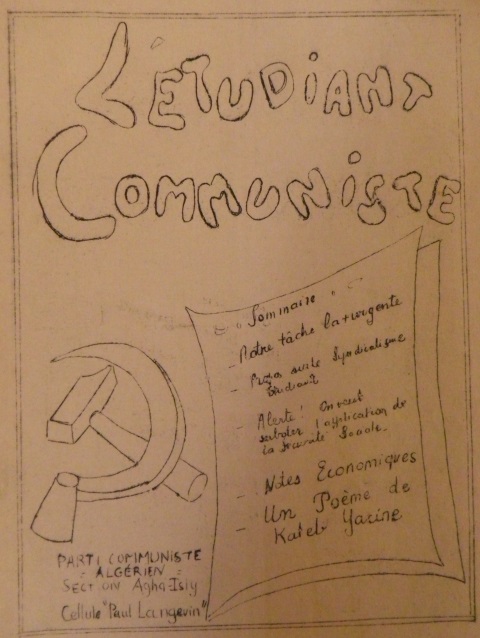 L'ÉTUDIANT
COMMUNISTE
" Sommaire "
- Notre tâche la + urgente
- Propos sur le Syndicalisme
Etudiant
- Alerte! On veut
saboter l'application de
la Sécurité Sociale.
- Notes Economiques
- Un Poème de
Kateb Yacine
PARTI COMMUNISTE
= ALGÉRIEN =
SECTION Agha-Isly
Cellule "Paul Langevin"